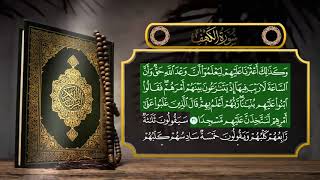 سورة الكهف
وَكَذَٰلِكَ أَعْثَرْنَا عَلَيْهِمْ لِيَعْلَمُوٓا۟ أَنَّ وَعْدَ ٱللَّهِ حَقٌّ وَأَنَّ
ٱلسَّاعَةَ لَا رَيْبَ فِيهَآ إِذْ يَتَنَـٰزَعُونَ بَيْنَهُمْ أَمْرَهُمْ فَقَالُوا۟
ٱبْنُوا۟ عَلَيْهِم بُنْيَـٰنًا رَّبُّهُمْ أَعْلَمُ بِهِمْ قَالَ ٱلَّذِينَ غَلَبُوا۟ عَلَىٰٓ
أَمْرِهِمْ لَنَتَّخِذَنَّ عَلَيْهِم مَّسْجِدًا ٢١ سَيَقُولُونَ ثَلَـٰثَةٌ
رَّابِعُهُمْ كَلْبُهُمْ وَيَقُولُونَ خَمْسَةٌ سَادِسُهُمْ كَلْبُهُمْ